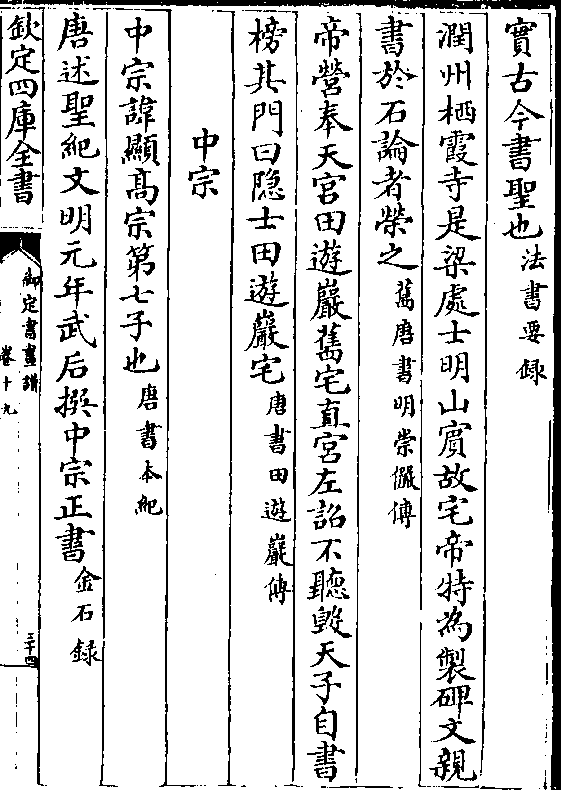 實古今書聖也法書要録
潤州栖霞寺是梁處士明山賔故宅帝特為製碑文親
書於石論者榮之舊唐書明崇儼傳
帝營奉天宫田遊巖舊宅直宫左詔不聽毁天子自書
榜其門曰隐士田遊巖宅唐書田遊巖傳
中宗
中宗諱顯髙宗第七子也唐書本紀
唐述聖紀文明元年武后撰中宗正書金石録
欽定四庫全書
御定書畫譜
卷十九
三十四